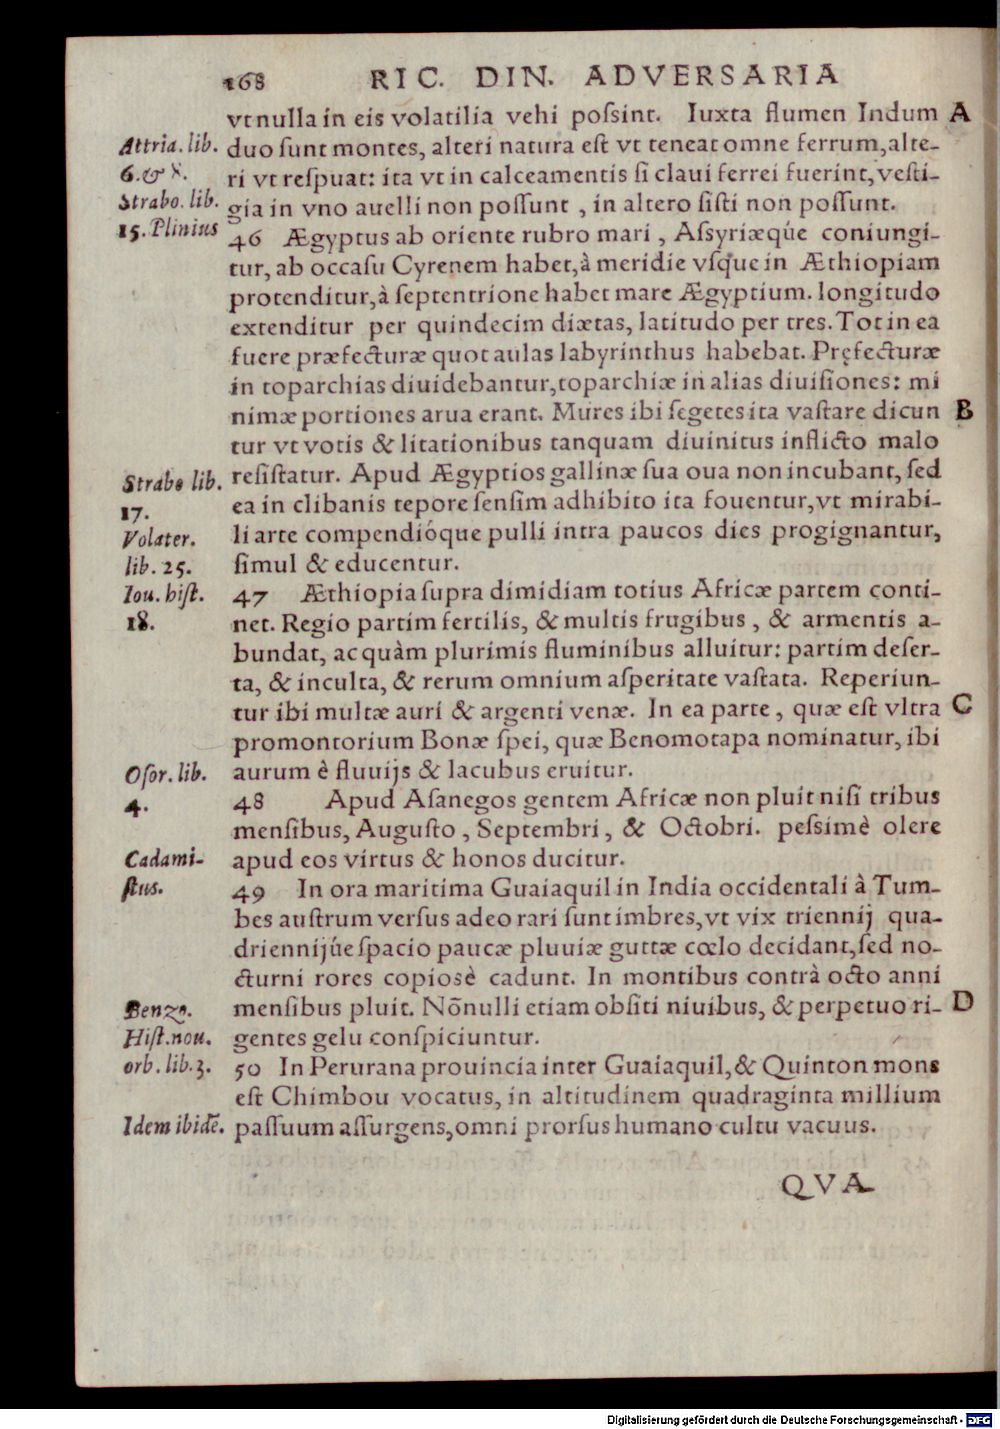 168 RIC. DIN. ADVERSARIA
vt nulla in eis volatilia vehi poſsint. Iuxta flumen Indum A
Attria. lib. duo ſunt montes, alteri natura eſt vt teneat omne ferrum, alte-
6. & 8. ri vt reſpuat: ita vt in calceamentis ſi claui ferrei fuerint, veſti-
Strabo. lib. gia in vno auelli non poſſunt, in altero ſiſti non poſſunt.
15. Plinius 46 Ægyptus ab oriente rubro mari, Aſsyriæq́ue coniungi-
tur, ab occaſu Cyrenem habet, à meridie vſque in Æthiopiam
protenditur, à ſeptentrione habet mare Ægyptium. longitudo
extenditur per quindecim diætas, latitudo per tres. Tot in ea
fuere præfecturæ quot aulas labyrinthus habebat. Pręfecturæ
in toparchias diuidebantur, toparchiæ in alias diuiſiones: mi
nimæ portiones arua erant. Mures ibi ſegetes ita vaſtare dicun B
tur vt votis & litationibus tanquam diuinitus inflicto malo
Strabo lib. reſiſtatur. Apud Ægyptios gallinæ ſua oua non incubant, ſed
17. ea in clibanis tepore ſenſim adhibito ita fouentur, vt mirabi-
Volater. li arte compendióque pulli intra paucos dies progignantur,
lib. 25. ſimul & educentur.
Iou. hiſt. 47 Æthiopia ſupra dimidiam totius Africæ partem conti-
18. net. Regio partim fertilis, & multis frugibus, & armentis a-
bundat, ac quàm plurimis fluminibus alluitur: partim deſer-
ta, & inculta, & rerum omnium aſperitate vaſtata. Reperiun-
tur ibi multæ auri & argenti venæ. In ea parte, quæ eſt vltra C
promontorium Bonæ ſpei, quæ Benomotapa nominatur, ibi
Oſor. lib. aurum è fluuijs & lacubus eruitur.
4. 48 Apud Aſanegos gentem Africæ non pluit niſi tribus
menſibus, Auguſto, Septembri, & Octobri. peſsimè olere
Cadami- apud eos virtus & honos ducitur.
ſtus. 49 In ora maritima Guaiaquil in India occidentali à Tum-
bes auſtrum verſus adeo rari ſunt imbres, vt vix triennij qua-
driennijúe ſpacio paucæ pluuiæ guttæ cœlo decidant, ſed no-
cturni rores copiosè cadunt. In montibus contrà octo anni
Benzo. menſibus pluit. Nõnulli etiam obſiti niuibus, & perpetuo ri- D
Hiſt. nou. gentes gelu conſpiciuntur.
orb. lib. 3. 50 In Perurana prouincia inter Guaiaquil, & Quinton mons
eſt Chimbou vocatus, in altitudinem quadraginta millium
Idem ibidẽ. paſſuum aſſurgens, omni prorſus humano cultu vacuus.
QVA
Digitalisierung gefördert durch die Deutsche Forschungsgemeinschaft - DFG